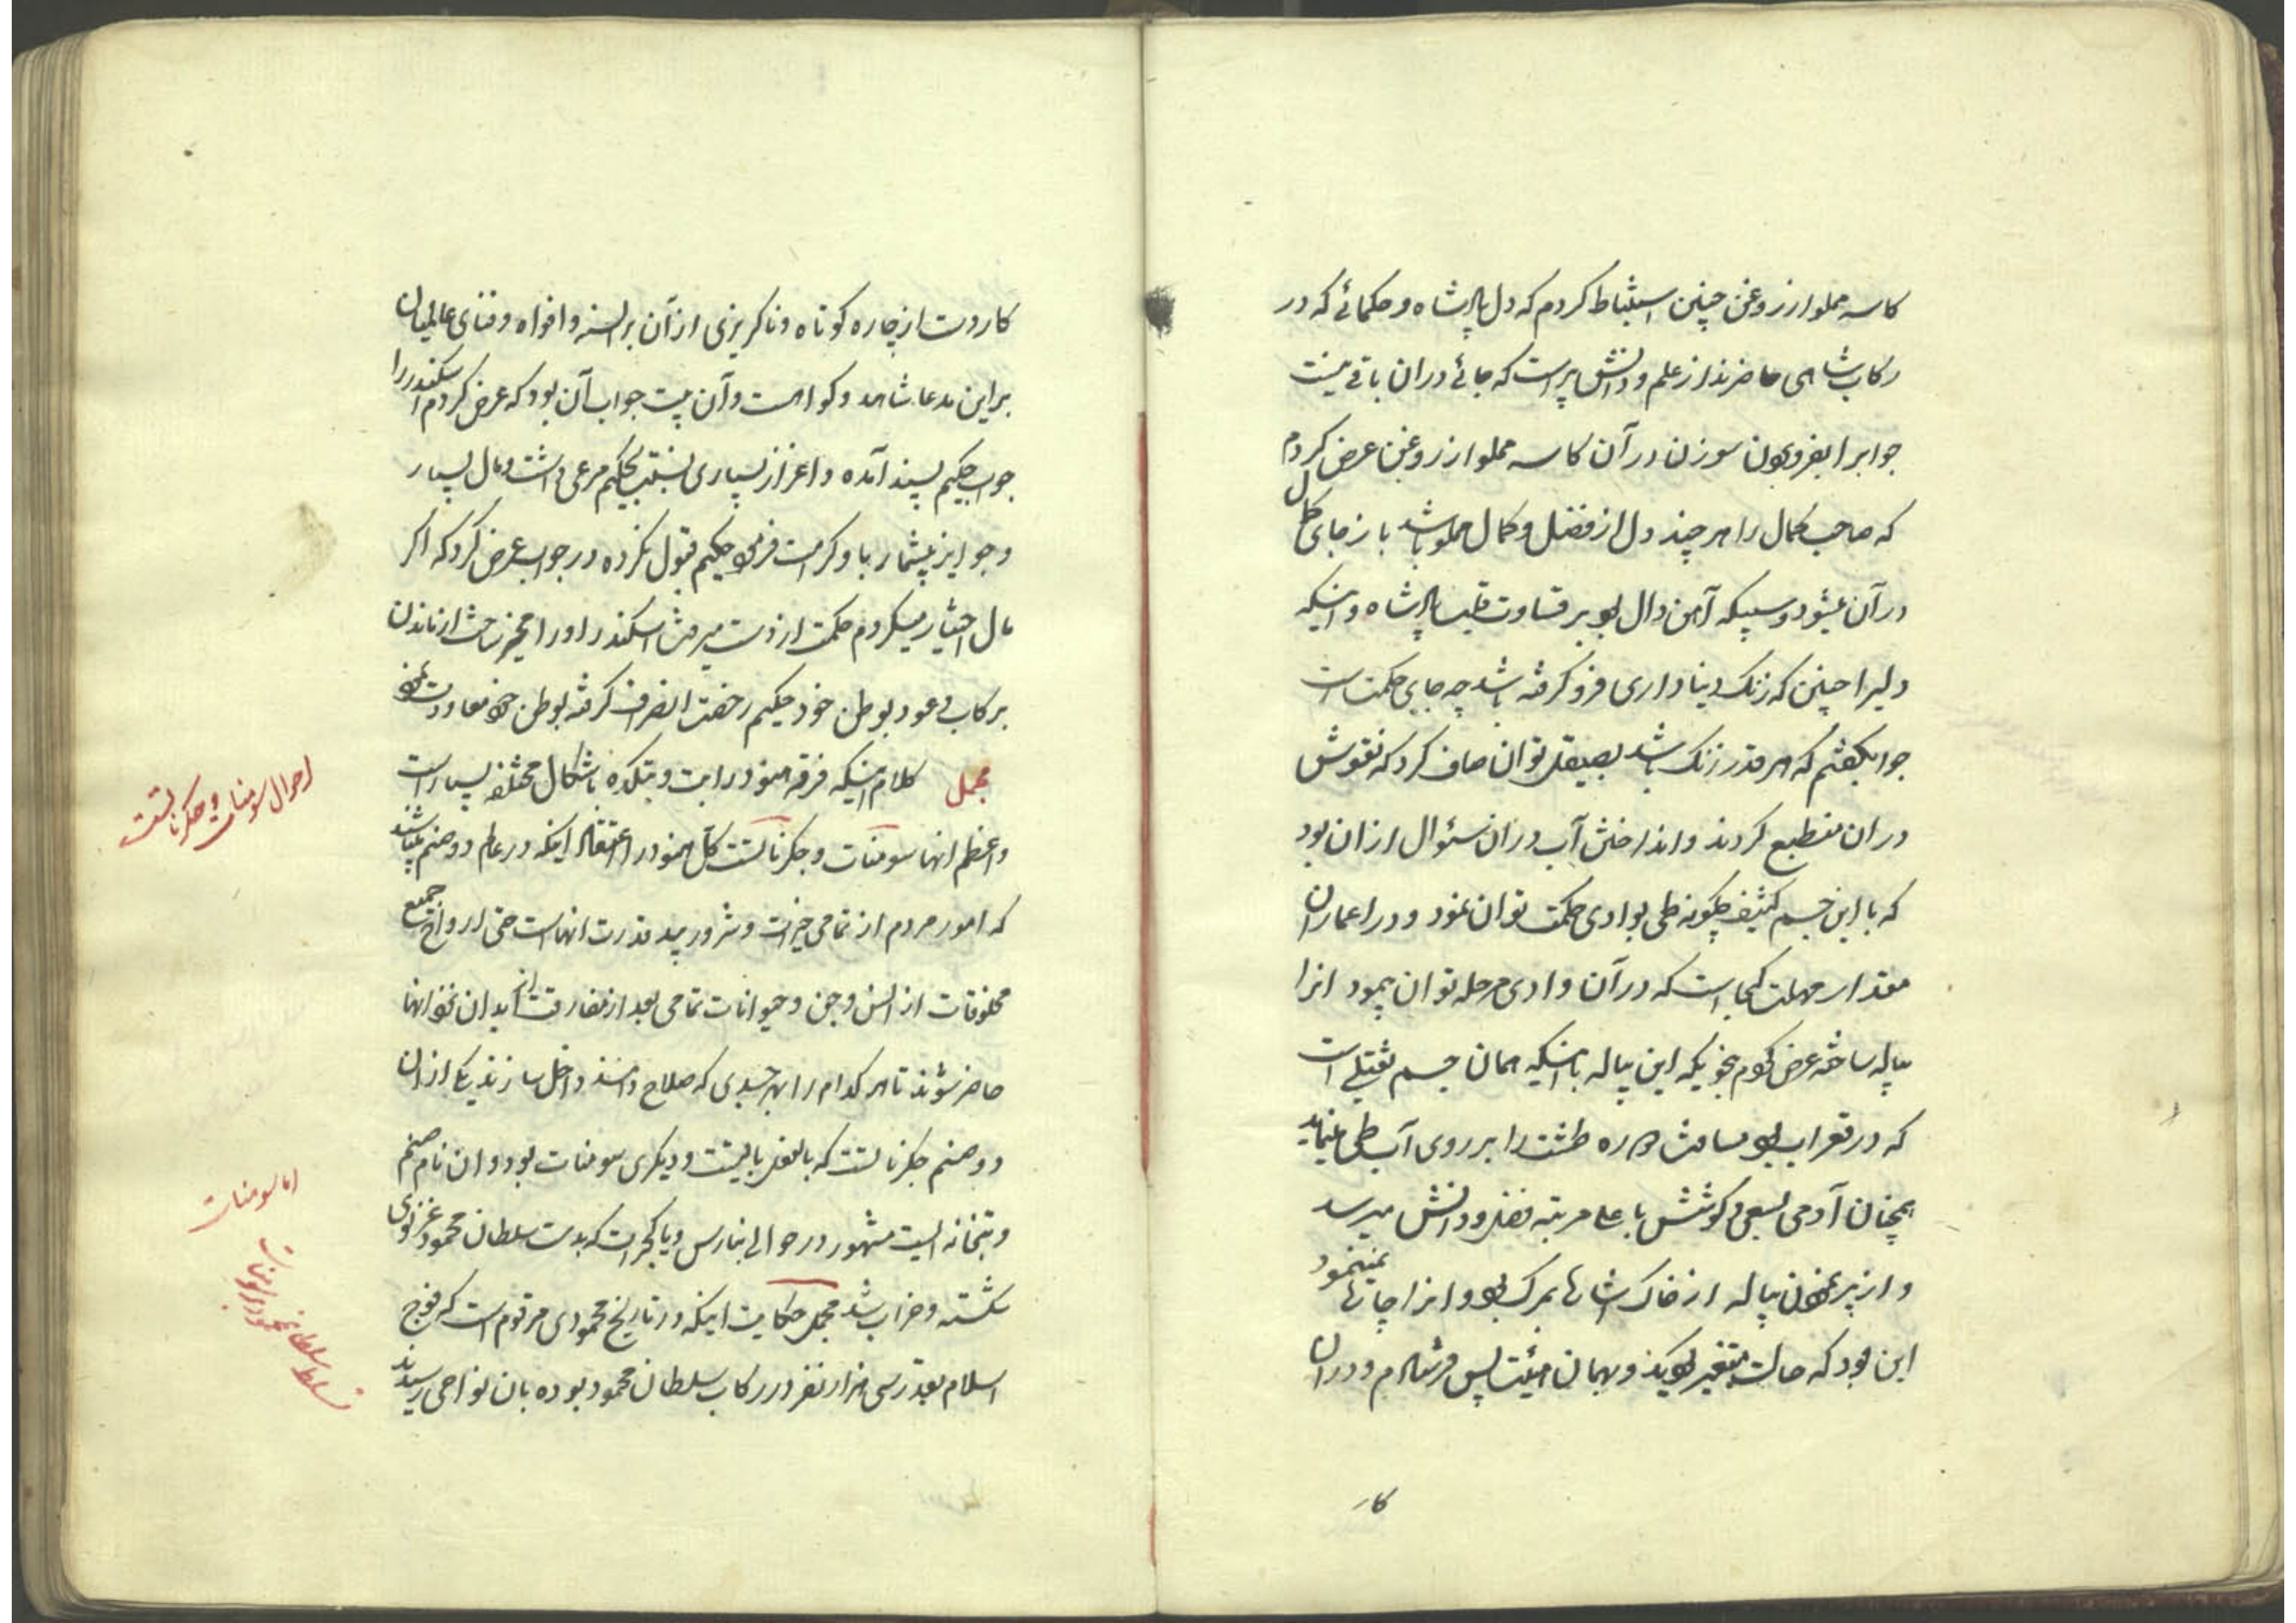 کاسه مملو از روغن چنین استنباط کردم که دل پادشاه و حکمائے که در
رکاب شاهی حاضرند از علم و دانش پر است که جائے دران باقے نیست
جوابرا بفرو بردن سوزن در آن کاسه مملو از روغن عرض کردم
که صاحب کمال را هر چند دل از فضل و کمال مملو باشد باز جای کمال
در آن میشود و سبیکه آهن دال بود بر قساوت قلب پادشاه و اینکه
دلیرا چنین که زنک دنیاداری فرو کرفته باشد چه جای حکمت است
جوابکفتم که هر قدر زنک باشد بصیقل توان صاف کرد که نقوش
دران منطبع کردند و انداختن آب دران سئوال ازان بود
که با این جسم کثیف چکونه طی بوادی حکمت توان نمود و در اعمار آن
مقدار مهلت کجا است که در آن وادی مرحله توان پیمود انرا
پیاله ساخته عرض کردم بنحویکه این پیاله با اینکه همان جسم ثقیل است
که در قعر آب بود مسافت دوره طشت را بر روی آب طی مینماید
همچنان آدمی بسعی و کوشش باعلی مرتبه فضل و دانش میرسد
و از پر نمودن پیاله از خاک اشارتی بمرک بود و انرا جوابی نمینمود
این بود که حالت متغیر نکوید و بهمان هیئت پس فرستادم و دران
کار
کار دست از چاره کوتاه و ناکریزی از آن بر السنه و افواه و فنای عالمیان
براین مدعا شاهد و کواهست و آن پیت جواب آن بود که عرض کردم اسکندر را
جواب حکیم پسند آمده و اعزاز بسیاری بنسبت بحکیم مرعی داشت و مال بسیار
و جوایز بیشمار باو کرامت فرمود حکیم قبول نکرده در جواب عرض کرد که اکر
مال اختیار میکردم حکمت از دست میرفت اسکندر او را مخیر ساخت از ماندن
برکاب و عود بوطن خود حکیم رخصت انصراف کرفته بوطن خود معاودت نمود
مجمل کلام اینکه فرقه هنود را بت و بتکده باشکال مختلفه بسیار است
و اعظم انها سومنات و جکرناتست کل هنود را اعتقاد اینکه در عالم دو صنم میباشد
که امور مردم از تمامی خیرات و شرور بید قدرت انهاست حتی ارواح جمیع
مخلوقات از انس و جن و حیوانات تمامی بعد از مفارقت از ابدان نزد انها
حاضر شوند تا هر کدام را بهر جسدی که صلاح دانند داخل سازند یکی ازان
دو صنم جکرناتست که بالفعل باقیست و دیکری سومنات بود و ان نام صنم
و بتخانه ایست مشهور در حوالی بنارس و یا کجرات که بدست سلطان محمود غزنوی
شکسته و خراب شد مجمل حکایت اینکه در تاریخ محمودی مرقوم است که فوج
اسلام بقدر سی هزار نفر در رکاب سلطان محمود بوده بان نواحی رسیدند
احوال سومنات و جکرناتست
اما سومنات
تسلط سلطان محمود بر سومنات